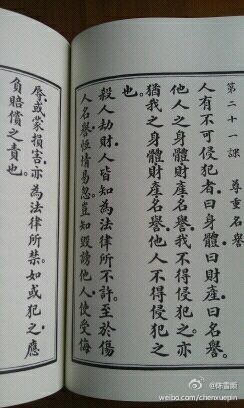 第二十一課　尊重名譽
人有不可侵犯者。曰身體。曰財產。曰名譽。
他人之身體財產名譽。我不得侵犯之。亦
猶我之身體財產名譽。他人不得侵犯之
也。
殺人劫財。人皆知為法律所不許。至於傷
人名譽。恒情易忽。豈知毀謗他人。使受侮
辱。或蒙損害。亦為法律所禁。如或犯之。應
負賠償之責也。
@陈雪频
weibo.com/chenxuepin